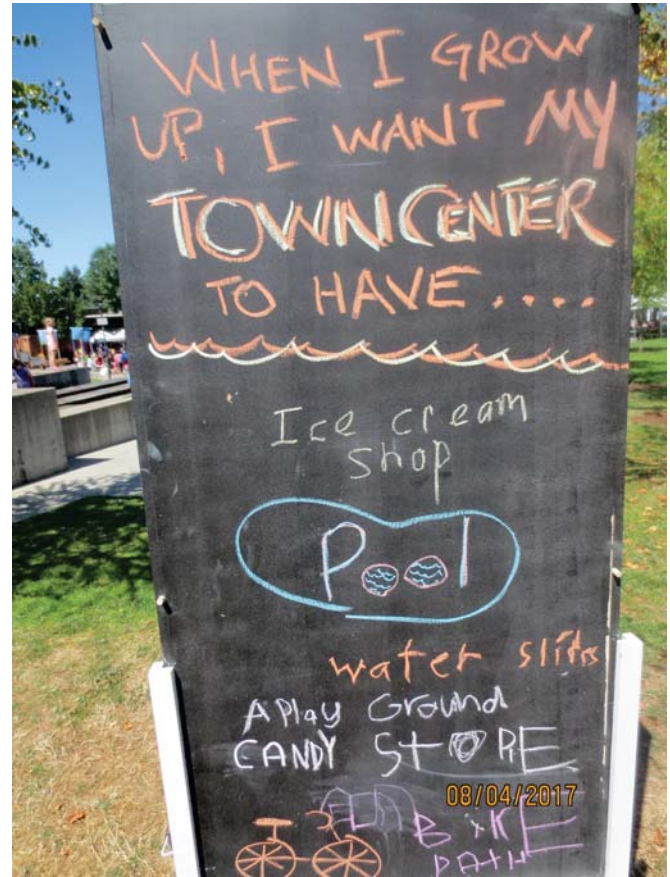 WHEN I GROW
UP, I WANT MY
TOWN CENTER
TO HAVE....
Ice cream
Shop
Pool
water slides
A Play Ground
CANDY STORE
08/04/2017
BIKE
PATH